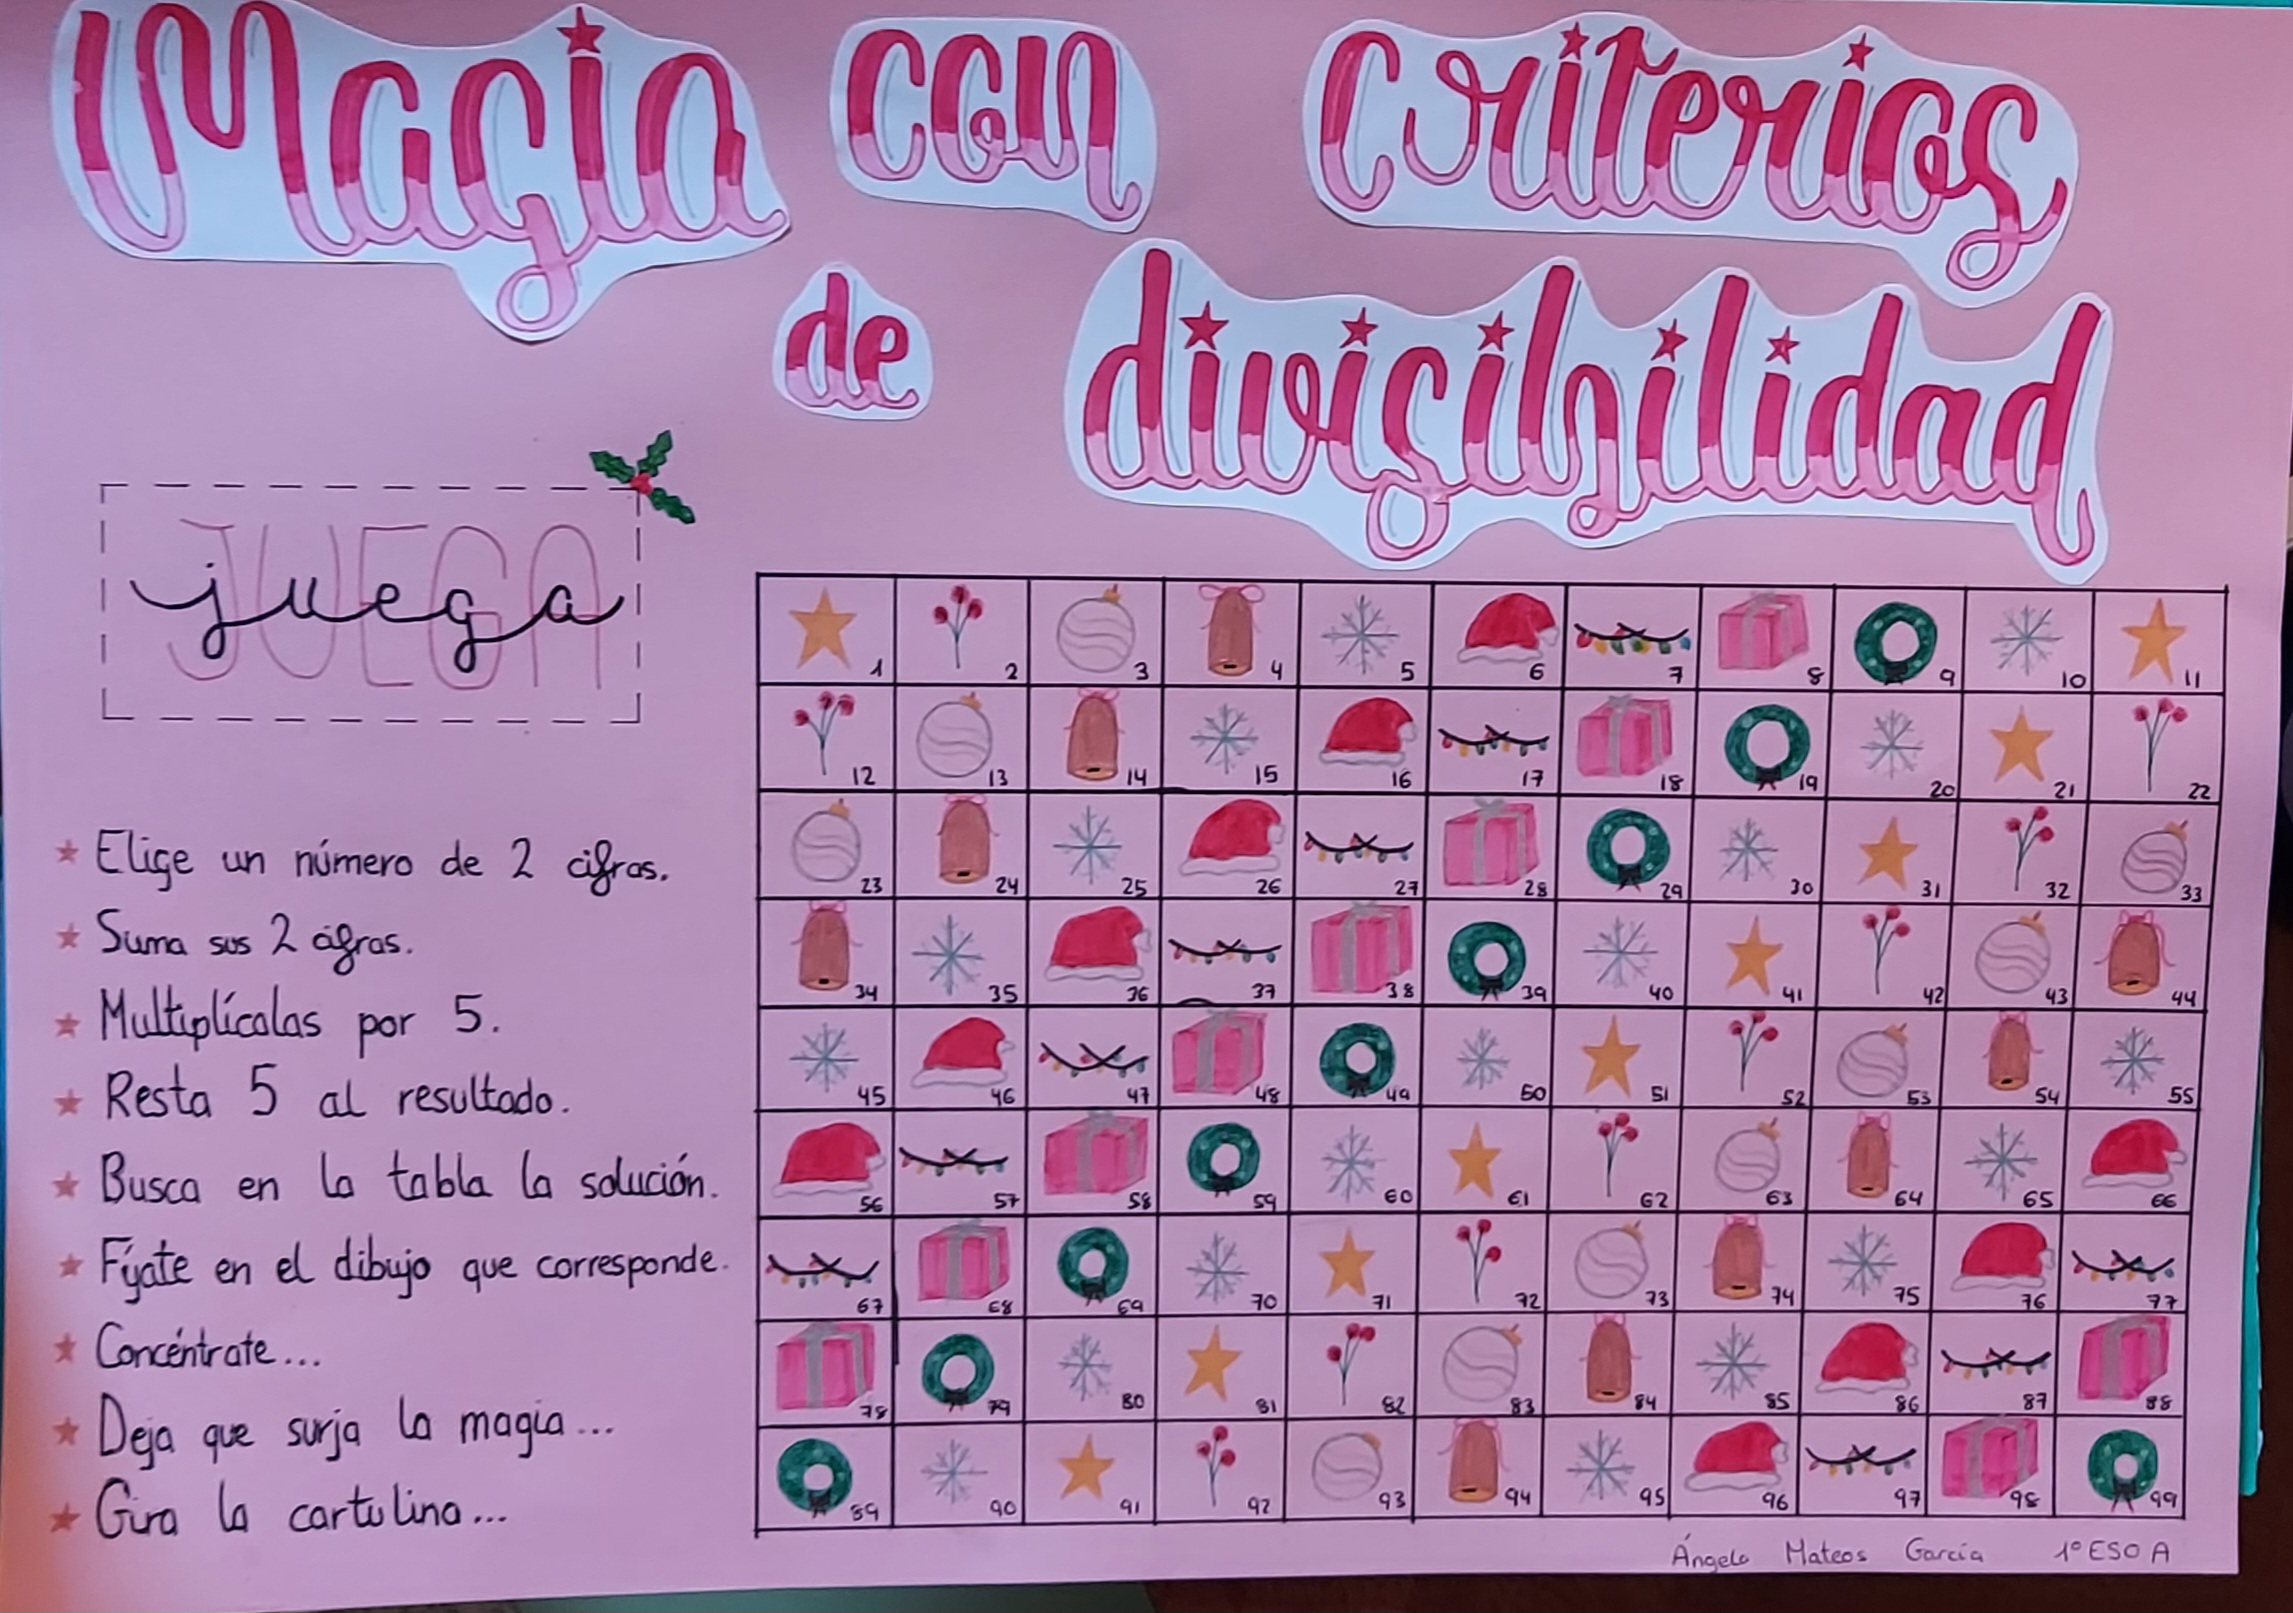 Magia con criterios
de divisibilidad
JUEGA
juega
Elige un número de 2 cifras.
Suma sus 2 cifras.
Multiplícalas por 5.
Resta 5 al resultado.
Busca en la tabla la solución.
Fíjate en el dibujo que corresponde.
Concéntrate...
Deja que surja la magia...
Gira la cartulina...
1 2 3 4 5 6 7 8 9 10 11
12 13 14 15 16 17 18 19 20 21 22
23 24 25 26 27 28 29 30 31 32 33
34 35 36 37 38 39 40 41 42 43 44
45 46 47 48 49 50 51 52 53 54 55
56 57 58 59 60 61 62 63 64 65 66
67 68 69 70 71 72 73 74 75 76 77
78 79 80 81 82 83 84 85 86 87 88
89 90 91 92 93 94 95 96 97 98 99
Ángela Mateos García 1º ESO A